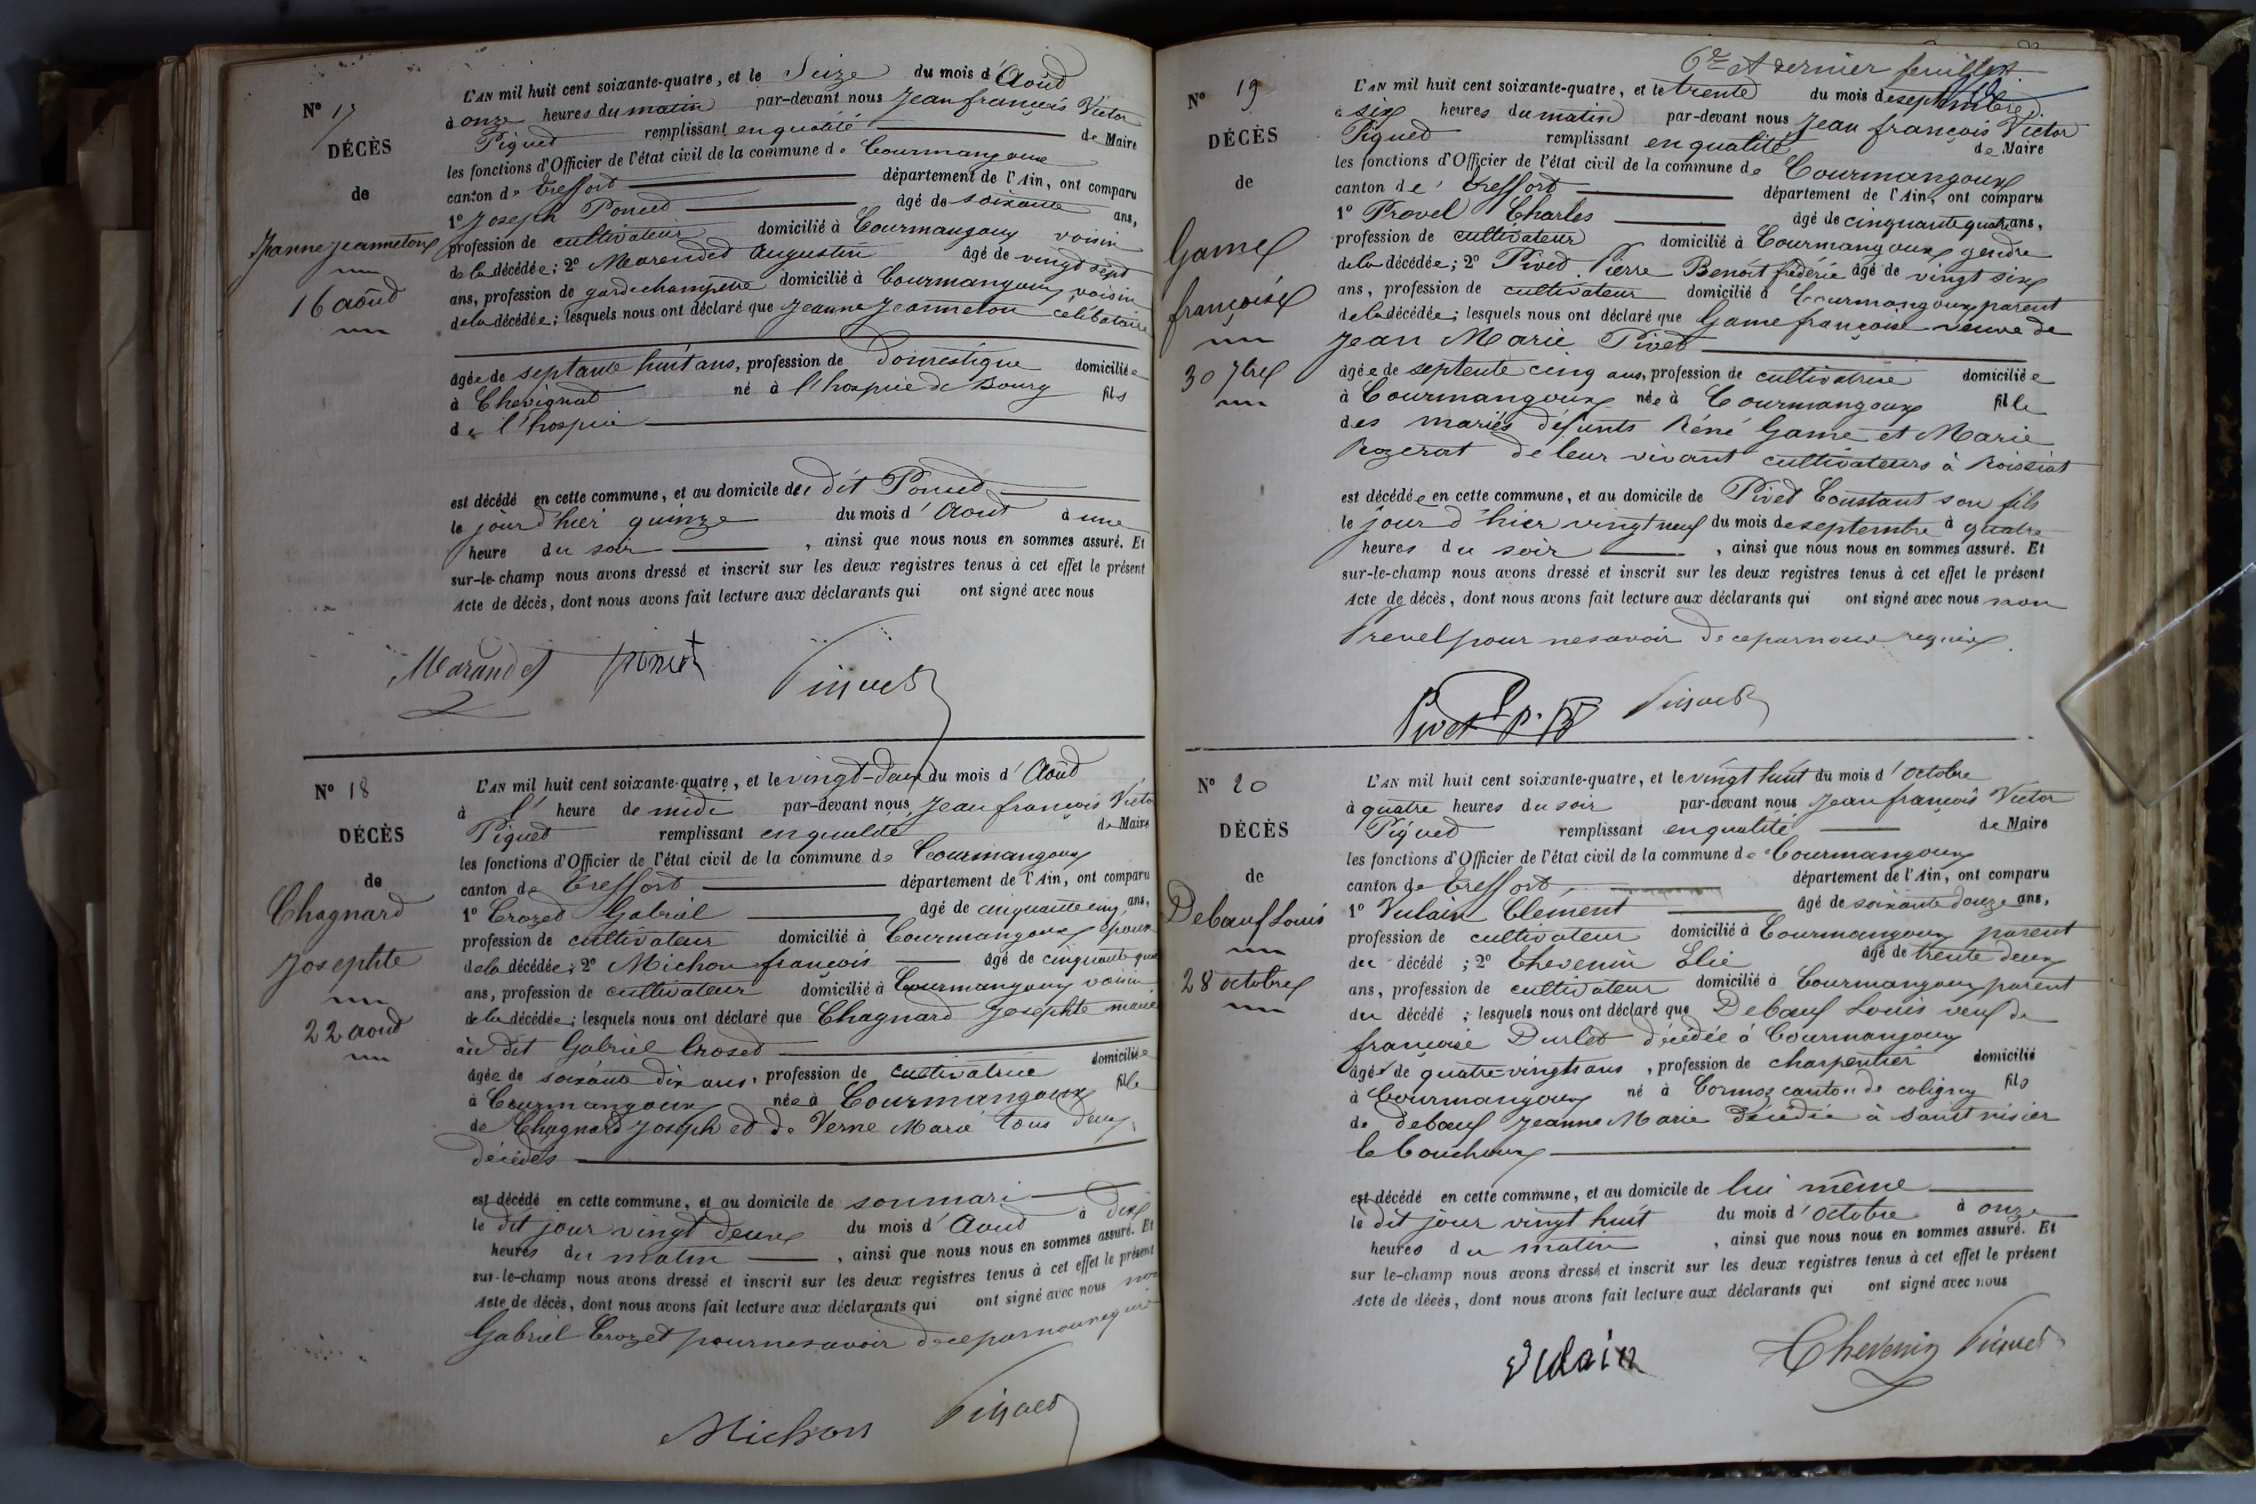 N° 17
DÉCÈS
de
Jeanne Jeanneton
16 août
L'AN mil huit cent soixante-quatre, et le Seize du mois d'Août
à onze heures du matin par-devant nous Jean françois Victor
Piquet remplissant en qualité de Maire
les fonctions d'Officier de l'état civil de la commune de Courmangoux
canton de Treffort département de l'Ain, ont comparu
1° Joseph Poncet âgé de soixante ans,
profession de cultivateur domicilié à Courmangoux voisin
de la décédée; 2° Marendet Augustin âgé de vingt sept
ans, profession de garde champêtre domicilié à Courmangoux voisin
de la décédée; lesquels nous ont déclaré que Jeanne Jeanneton célibataire
âgée de septante huit ans, profession de Domestique domiciliée
à Chevignat né à l'hospice de Bourg fils
de l'hospice
est décédé en cette commune, et au domicile de dit Poncet
le jour d'hier quinze du mois d'Aout à une
heure du soir, ainsi que nous nous en sommes assuré. Et
sur-le-champ nous avons dressé et inscrit sur les deux registres tenus à cet effet le présent
Acte de décès, dont nous avons fait lecture aux déclarants qui ont signé avec nous
Marandet Poncet Piquet
N° 18
DÉCÈS
de
Chagnard
Josephte
22 aout
L'AN mil huit cent soixante-quatre, et le vingt-deux du mois d'Août
à l'heure de midi par-devant nous Jean françois Victor
Piquet remplissant en qualité de Maire
les fonctions d'Officier de l'état civil de la commune de Courmangoux
canton de Treffort département de l'Ain, ont comparu
1° Crozet Gabriel âgé de cinquante cinq ans,
profession de cultivateur domicilié à Courmangoux époux
de la décédée; 2° Michon françois âgé de cinquante
ans, profession de cultivateur domicilié à Courmangoux voisin
de la décédée; lesquels nous ont déclaré que Chagnard Josephte
au dit Gabriel Crozet
âgée de soixante dix ans, profession de cultivatrice domiciliée
à Courmangoux née à Courmangoux fille
de Chagnard Joseph et de Verne Marie tous deux
décédés
est décédé en cette commune, et au domicile de son mari
le dit jour vingt deux du mois d'Aout à dix
heures du matin, ainsi que nous nous en sommes assuré. Et
sur-le-champ nous avons dressé et inscrit sur les deux registres tenus à cet effet le présent
Acte de décès, dont nous avons fait lecture aux déclarants qui ont signé avec nous non
Gabriel Crozet pour ne savoir de ce par nous requis
Michon Piquet
6me et dernier feuillet
N° 19
DÉCÈS
de
Game
françoise
30 7bre
L'AN mil huit cent soixante-quatre, et le trente du mois de septembre
à six heures du matin par-devant nous Jean françois Victor
Piquet remplissant en qualité de Maire
les fonctions d'Officier de l'état civil de la commune de Courmangoux
canton de Treffort département de l'Ain, ont comparu
1° Provel Charles âgé de cinquante quatre ans,
profession de cultivateur domicilié à Courmangoux gendre
de la décédée; 2° Pivet Pierre Benoit frédéric âgé de vingt six
ans, profession de cultivateur domicilié à Courmangoux parent
de la décédée; lesquels nous ont déclaré que Game françoise veuve de
Jean Marie Pivet
âgée de septente cinq ans, profession de cultivatrice domiciliée
à Courmangoux née à Courmangoux fille
des mariés défunts Réné Game et Marie
Rozerat de leur vivant cultivateurs à Roissiat
est décédée en cette commune, et au domicile de Pivet Constant son fils
le jour d'hier vingt neuf du mois de septembre à quatre
heures du soir, ainsi que nous nous en sommes assuré. Et
sur-le-champ nous avons dressé et inscrit sur les deux registres tenus à cet effet le présent
Acte de décès, dont nous avons fait lecture aux déclarants qui ont signé avec nous non
Prevel pour ne savoir de ce par nous requis.
Pivet Piquet
N° 20
DÉCÈS
de
Debœuf Louis
28 octobre
L'AN mil huit cent soixante-quatre, et le vingt huit du mois d'octobre
à quatre heures du soir par-devant nous Jean françois Victor
Piquet remplissant en qualité de Maire
les fonctions d'Officier de l'état civil de la commune de Courmangoux
canton de Treffort département de l'Ain, ont comparu
1° Vulain Clement âgé de soixante douze ans,
profession de cultivateur domicilié à Courmangoux parent
du décédé; 2° Chevenin Elie âgé de trente deux
ans, profession de cultivateur domicilié à Courmangoux parent
du décédé; lesquels nous ont déclaré que Debœuf Louis veuf de
françoise Durlet décédée à Courmangoux
âgé de quatre vingts ans, profession de charpentier domicilié
à Courmangoux né à Cormoz canton de coligny fils
de debœuf Jeanne Marie décédée à Saint nisier
le bouchoux
est décédé en cette commune, et au domicile de lui même
le dit jour vingt huit du mois d'octobre à onze
heures du matin, ainsi que nous nous en sommes assuré. Et
sur le-champ nous avons dressé et inscrit sur les deux registres tenus à cet effet le présent
Acte de décès, dont nous avons fait lecture aux déclarants qui ont signé avec nous
Vulain Chevenin Piquet